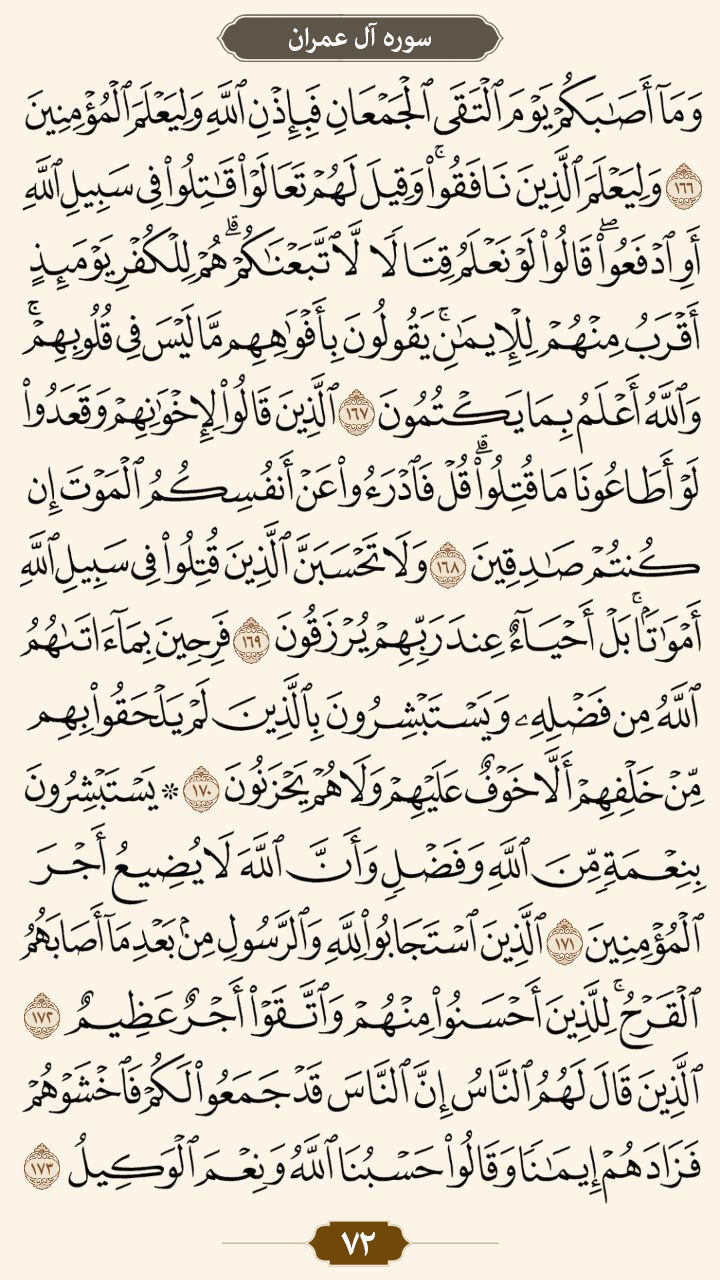 سوره آل عمران
وَمَآ أَصَٰبَكُمْ يَوْمَ ٱلْتَقَى ٱلْجَمْعَانِ فَبِإِذْنِ ٱللَّهِ وَلِيَعْلَمَ ٱلْمُؤْمِنِينَ
١٦٦ وَلِيَعْلَمَ ٱلَّذِينَ نَافَقُوا۟ ۚ وَقِيلَ لَهُمْ تَعَالَوْا۟ قَٰتِلُوا۟ فِى سَبِيلِ ٱللَّهِ
أَوِ ٱدْفَعُوا۟ ۖ قَالُوا۟ لَوْ نَعْلَمُ قِتَالًا لَّٱتَّبَعْنَٰكُمْ ۗ هُمْ لِلْكُفْرِ يَوْمَئِذٍ
أَقْرَبُ مِنْهُمْ لِلْإِيمَٰنِ ۚ يَقُولُونَ بِأَفْوَٰهِهِم مَّا لَيْسَ فِى قُلُوبِهِمْ ۚ
وَٱللَّهُ أَعْلَمُ بِمَا يَكْتُمُونَ ١٦٧ ٱلَّذِينَ قَالُوا۟ لِإِخْوَٰنِهِمْ وَقَعَدُوا۟
لَوْ أَطَاعُونَا مَا قُتِلُوا۟ ۗ قُلْ فَٱدْرَءُوا۟ عَنْ أَنفُسِكُمُ ٱلْمَوْتَ إِن
كُنتُمْ صَٰدِقِينَ ١٦٨ وَلَا تَحْسَبَنَّ ٱلَّذِينَ قُتِلُوا۟ فِى سَبِيلِ ٱللَّهِ
أَمْوَٰتًۢا ۚ بَلْ أَحْيَآءٌ عِندَ رَبِّهِمْ يُرْزَقُونَ ١٦٩ فَرِحِينَ بِمَآ ءَاتَىٰهُمُ
ٱللَّهُ مِن فَضْلِهِۦ وَيَسْتَبْشِرُونَ بِٱلَّذِينَ لَمْ يَلْحَقُوا۟ بِهِم
مِّنْ خَلْفِهِمْ أَلَّا خَوْفٌ عَلَيْهِمْ وَلَا هُمْ يَحْزَنُونَ ١٧٠ * يَسْتَبْشِرُونَ
بِنِعْمَةٍ مِّنَ ٱللَّهِ وَفَضْلٍ وَأَنَّ ٱللَّهَ لَا يُضِيعُ أَجْرَ
ٱلْمُؤْمِنِينَ ١٧١ ٱلَّذِينَ ٱسْتَجَابُوا۟ لِلَّهِ وَٱلرَّسُولِ مِنۢ بَعْدِ مَآ أَصَابَهُمُ
ٱلْقَرْحُ ۚ لِلَّذِينَ أَحْسَنُوا۟ مِنْهُمْ وَٱتَّقَوْا۟ أَجْرٌ عَظِيمٌ ١٧٢
ٱلَّذِينَ قَالَ لَهُمُ ٱلنَّاسُ إِنَّ ٱلنَّاسَ قَدْ جَمَعُوا۟ لَكُمْ فَٱخْشَوْهُمْ
فَزَادَهُمْ إِيمَٰنًا وَقَالُوا۟ حَسْبُنَا ٱللَّهُ وَنِعْمَ ٱلْوَكِيلُ ١٧٣
٧٢